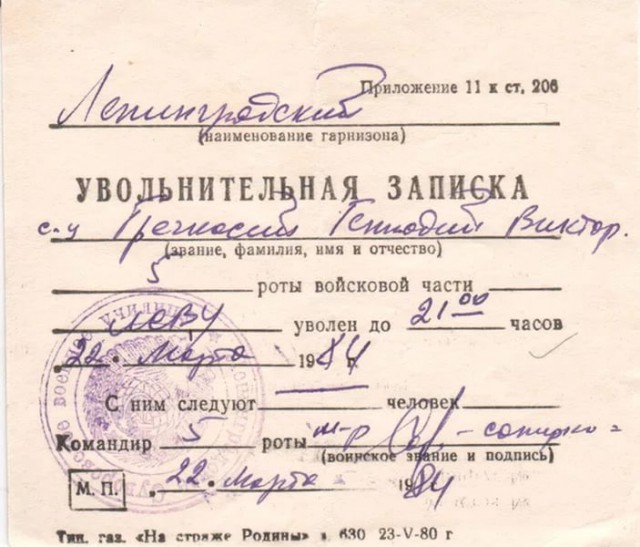 Приложение 11 к ст. 206
Ленинградский
(наименование гарнизона)
УВОЛЬНИТЕЛЬНАЯ ЗАПИСКА
с-у Гречкосий Геннадий Виктор.
(звание, фамилия, имя и отчество)
5 роты войсковой части
ЛСВУ уволен до 21 00 часов
22 Марта 1984
С ним следуют человек
Командир 5 роты м-р
(воинское звание и подпись)
М. П. 22 Марта 1984
Тип. газ. «На страже Родины» з. 630 23-V-80 г